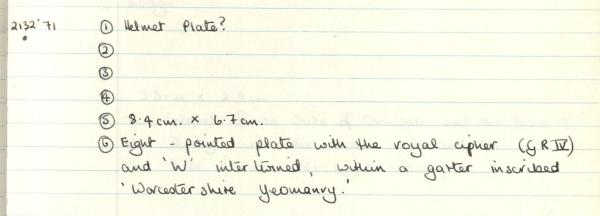 2132'71 ① Helmet Plate?
②
③
④
⑤ 8.4cm. × 6.7cm.
⑥ Eight-pointed plate with the royal cipher (G R IV)
and 'W' intertwined, within a garter inscribed
'Worcestershire Yeomanry.'